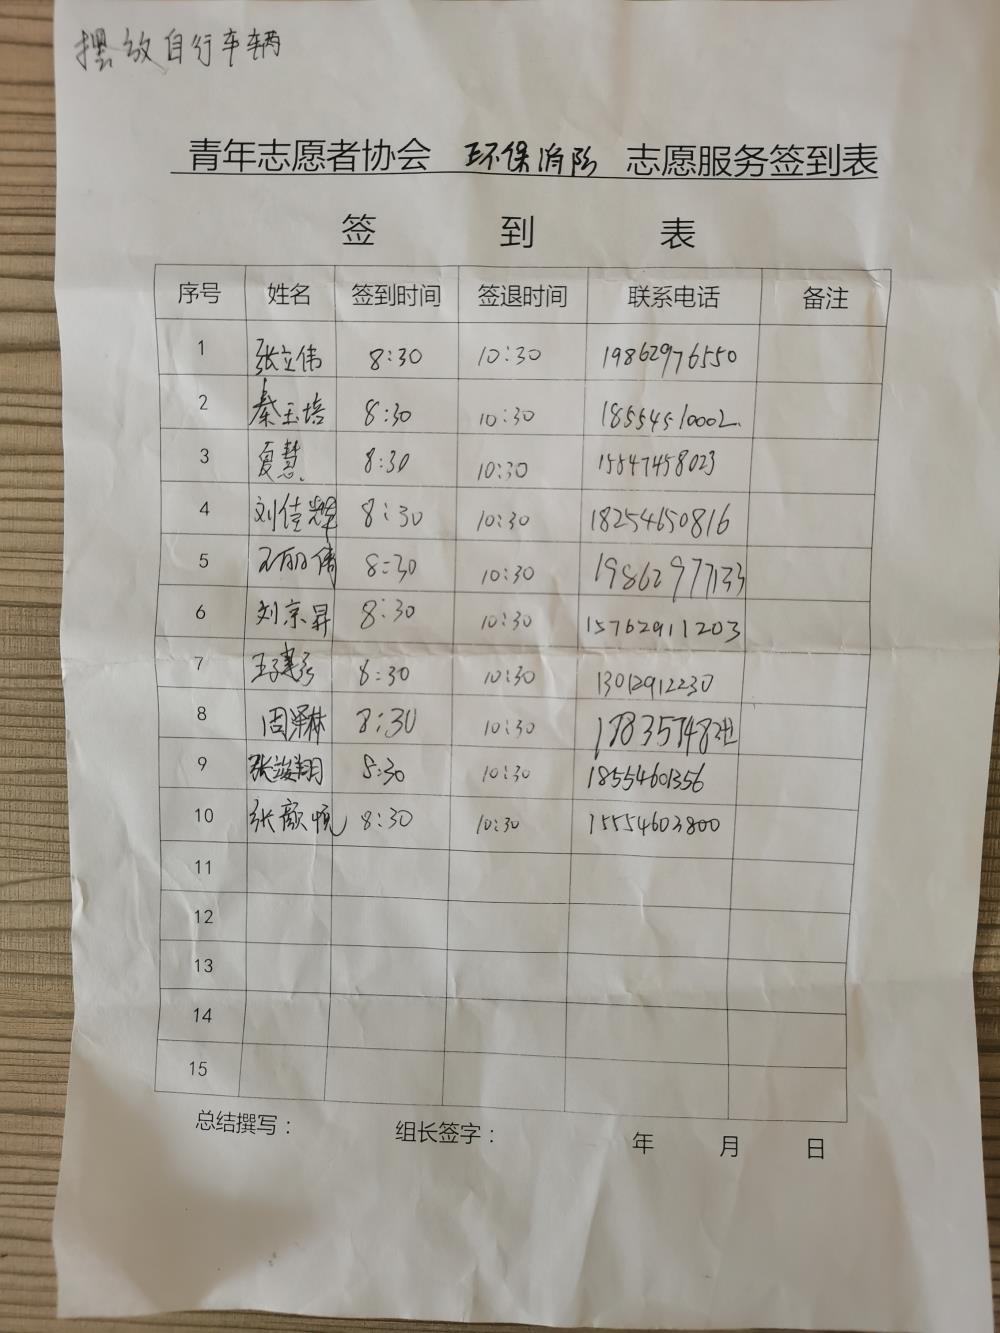 摆放自行车辆
青年志愿者协会 环保消防 志愿服务签到表
签 到 表
序号 姓名 签到时间 签退时间 联系电话 备注
1 张立伟 8:30 10:30 19862976550
2 秦玉培 8:30 10:30 18554510002
3 夏慧 8:30 10:30 15547458023
4 刘佳辉 8:30 10:30 18254650816
5 王丽倩 8:30 10:30 19862977133
6 刘京昇 8:30 10:30 15762911203
7 8:30 10:30 13012912230
8 周泽林 8:30 10:30
9 张竣翔 8:30 10:30 18554601356
10 张颜悦 8:30 10:30 15554603800
11
12
13
14
15
总结撰写： 组长签字： 年 月 日